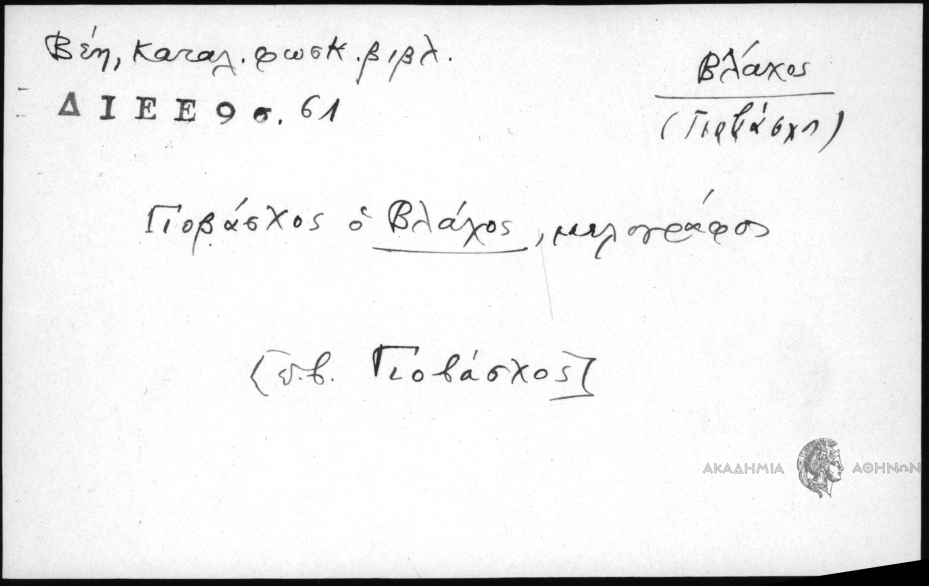 Βέη, Καταλ. φωσκ. βιβλ.
ΔΙΕΕ 9 σ. 61
Βλάχος
(Γιοβάσχη)
Γιοβάσχος ὁ Βλάχος, μελογράφος
[ἐ.β. Γιοβάσχος]
ΑΚΑΔΗΜΙΑ ΑΘΗΝΩΝ